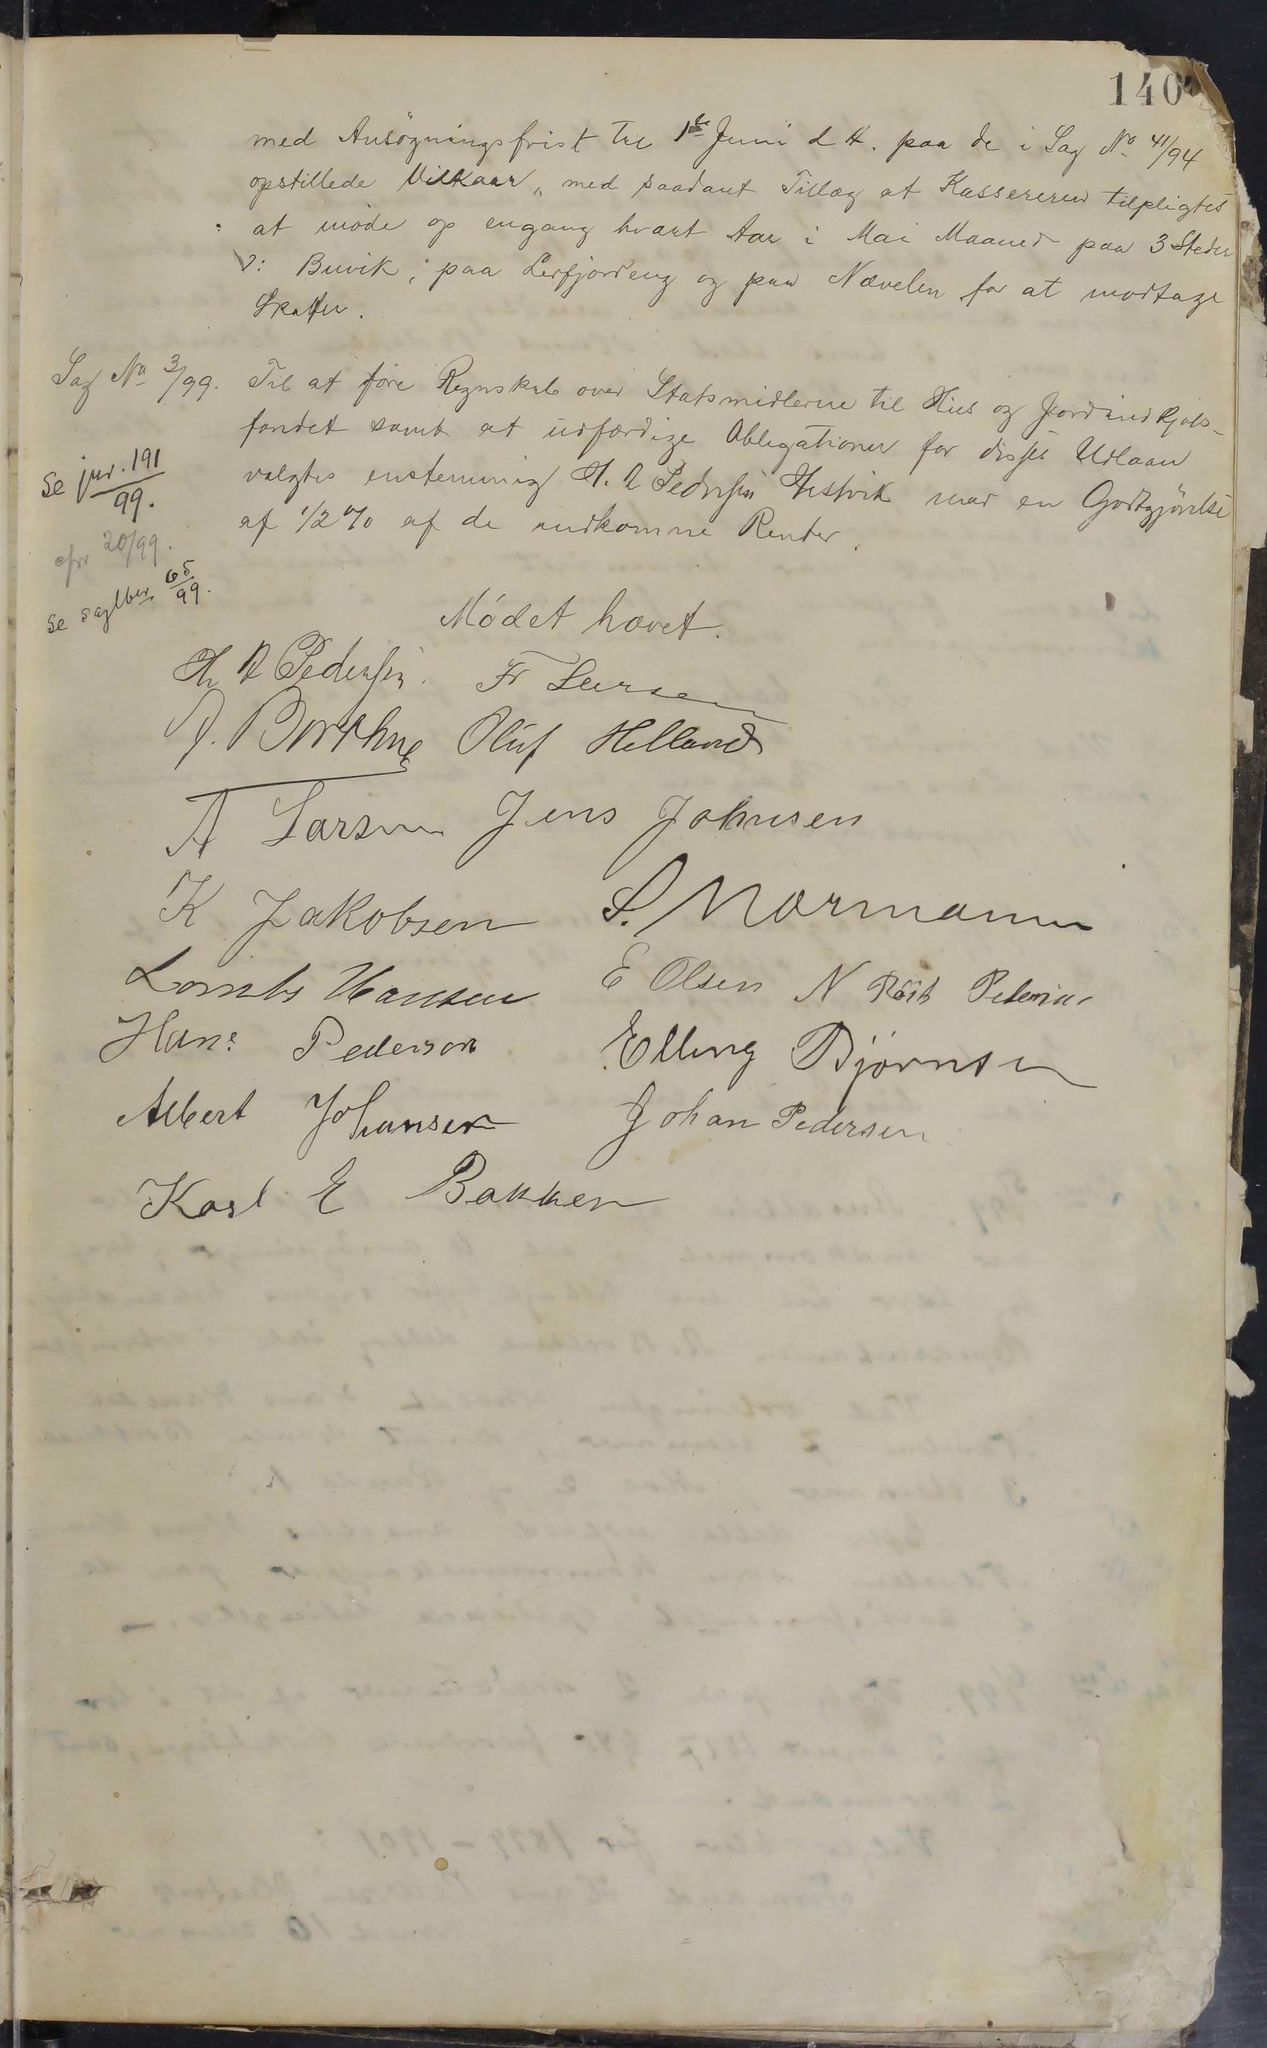 140
med Ansøgningsfrist til 1ste Juni d A. paa de i Sag No 41/94
opstillede Vilkaar, med saadant Tillæg at Kassereren tilpligtes
at møde op engang hvært Aar i Mai Maaned paa 3 Steder
ɔ: Buvik, paa Leifjordeng og paa Nævelen for at modtage
Skatter.
Sag No 3/99. Til at føre Regnskab over Statsmidlerne til Hus og Jordindkjøbs-
fondet samt at udfærdige Obligationer for disse Udlaan
valgtes enstemmig H. A Pedersen Hestvik med en Godtgjørelse
af 1/2 % af de indkomne Renter.
Se jur. 191/99.
cfr 20/99.
Se sag 65/99.
Mødet hævet.
H A Pedersen. Fr Larsen
Oluf Helland
A Larsen Jens Johnsen
K Jakobsen S. Normann
Hansen E Olsen N Pedersen
Hans Pedersen Elling Bjørnsen
Albert Johansen Johan Pedersen
Karl E Bakken